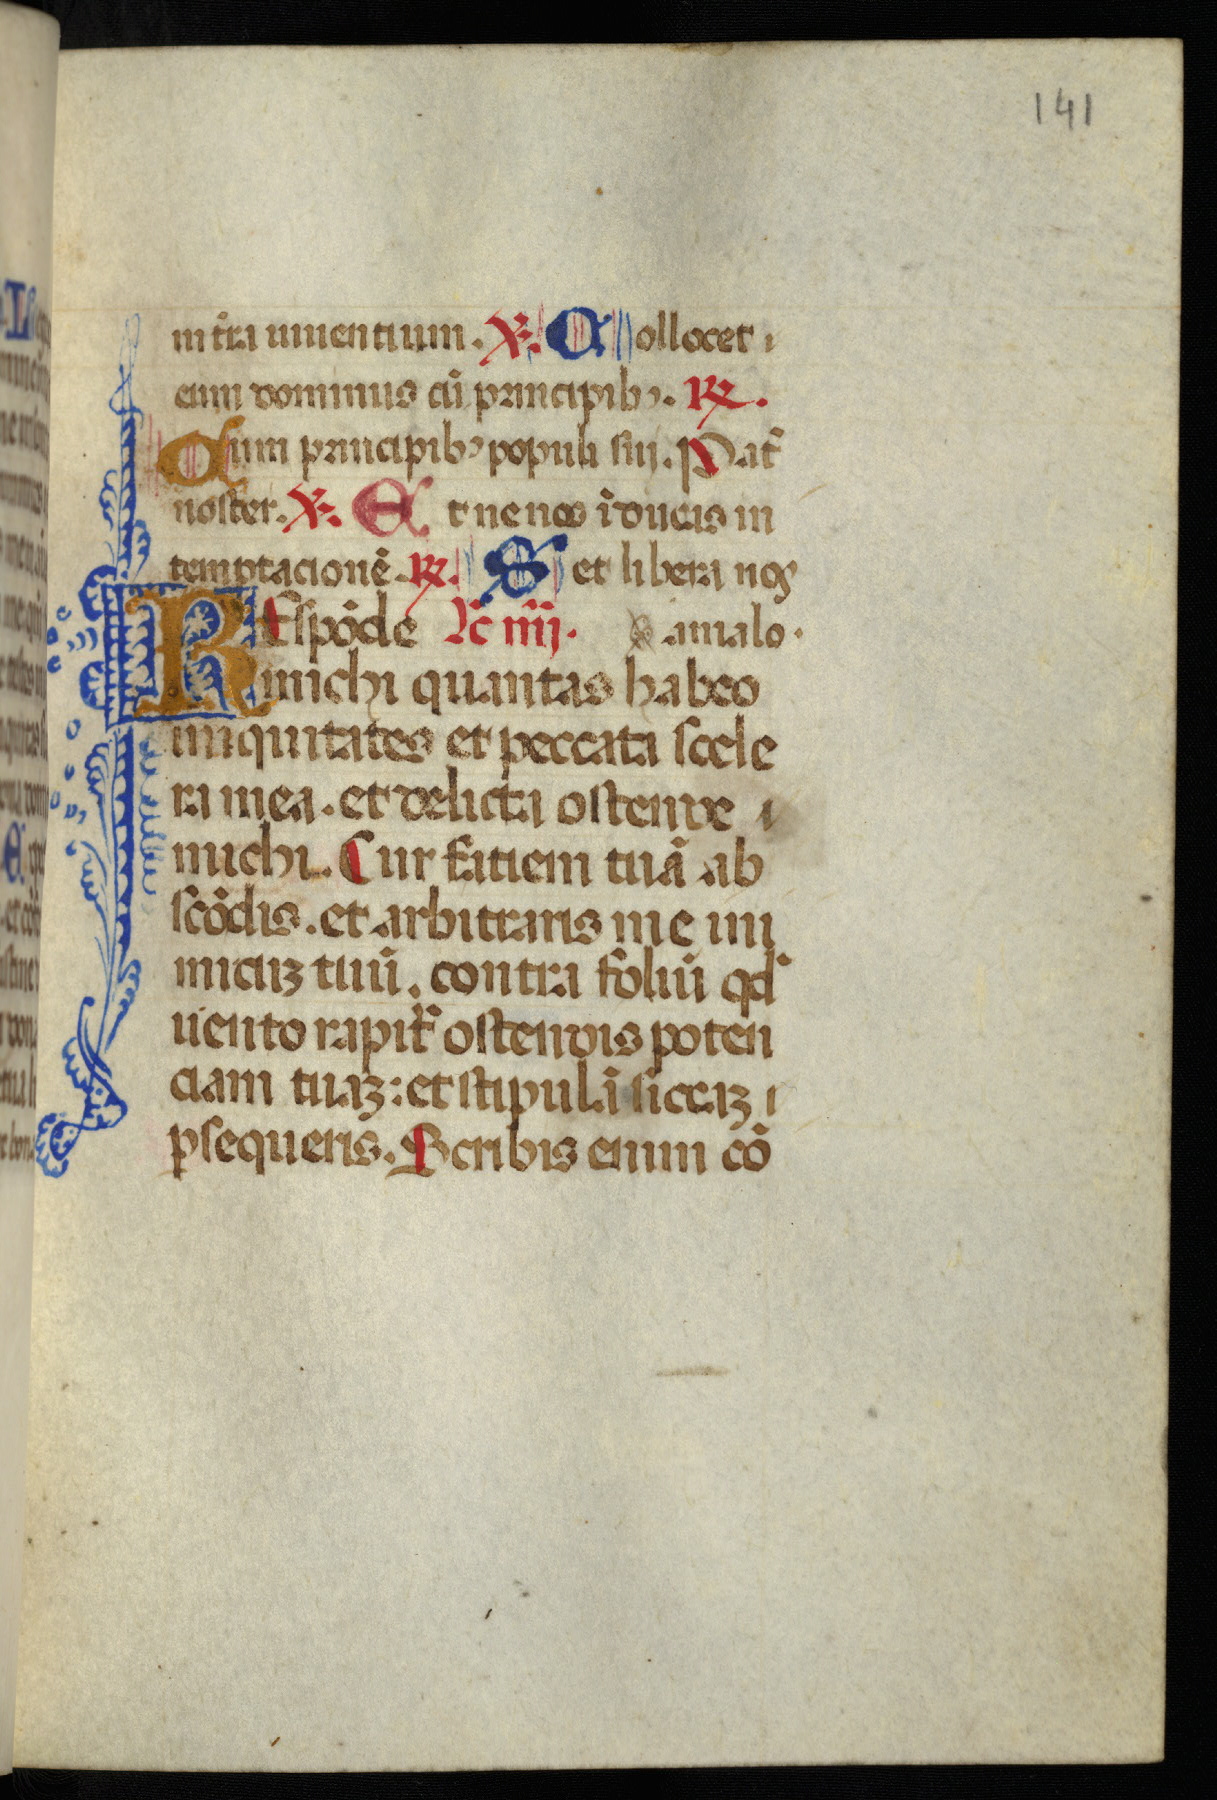 141
in t̃ra uiuentium. ℣. Collocet
eum dominus cũ principibꝰ. ℟.
Cum principibꝰ populi sui. Pat̃
noster. ℣. Et ne nos ĩducas in
temptacionẽ. ℟. Set libera nos
REspõde Lc̃ iiij. a malo.
michi quantas habeo
iniquitates et peccata scele
ra mea. et delicta ostende
michi. Cur faciem tuã ab
scõdis. et arbitraris me ini
micuʒ tuũ. contra foliũ qd̃
uento rapit̃ ostendis poten
ciam tuaʒ: et stipulã siccaʒ
ꝑsequeris. Scribis enim cõ